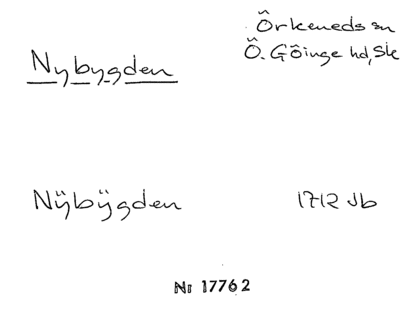 Örkeneds sn
Nybygden
Ö. Göinge hd, Sk
Nÿbÿgden 1712 Jb
Nr 17762